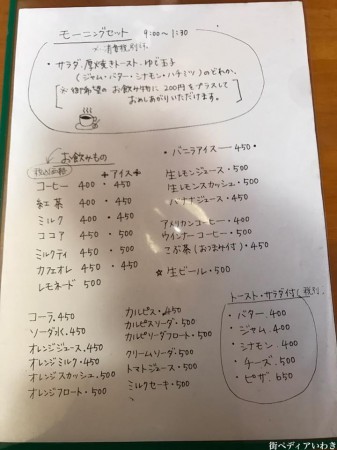 モーニングセット 9:00〜1:30
・サラダ・厚焼きトースト・ゆで玉子
(ジャム・バター・シナモン・ハチミツ)のどれか。
※御希望のお飲み物に200円をプラスして
おめしあがりいただけます。
お飲みもの
税込価格 ＋アイス＋
コーヒー 400 ・ 450
紅茶 400 ・ 450
ミルク 400 ・ 450
ココア 450 ・ 500
ミルクティ 450 ・ 450
カフェオレ 450 ・ 450
レモネード 500
・バニラアイス — 450
生レモンジュース・500
生レモンスカッシュ・500
バナナジュース・450
アメリカンコーヒー・400
ウインナーコーヒー・500
こぶ茶(おつまみ付)・450
☆生ビール・500
コーラ・450
ソーダ水・450
オレンジジュース・450
オレンジミルク・450
オレンジスカッシュ・500
オレンジフロート・500
カルピス・450
カルピスソーダ・500
カルピスソーダフロート・500
クリームソーダ・500
トマトジュース・500
ミルクセーキ・500
トースト・サラダ付し
・バター・400
・ジャム・400
・シナモン・400
・チーズ・500
・ピザ・650
街ペディアいわき